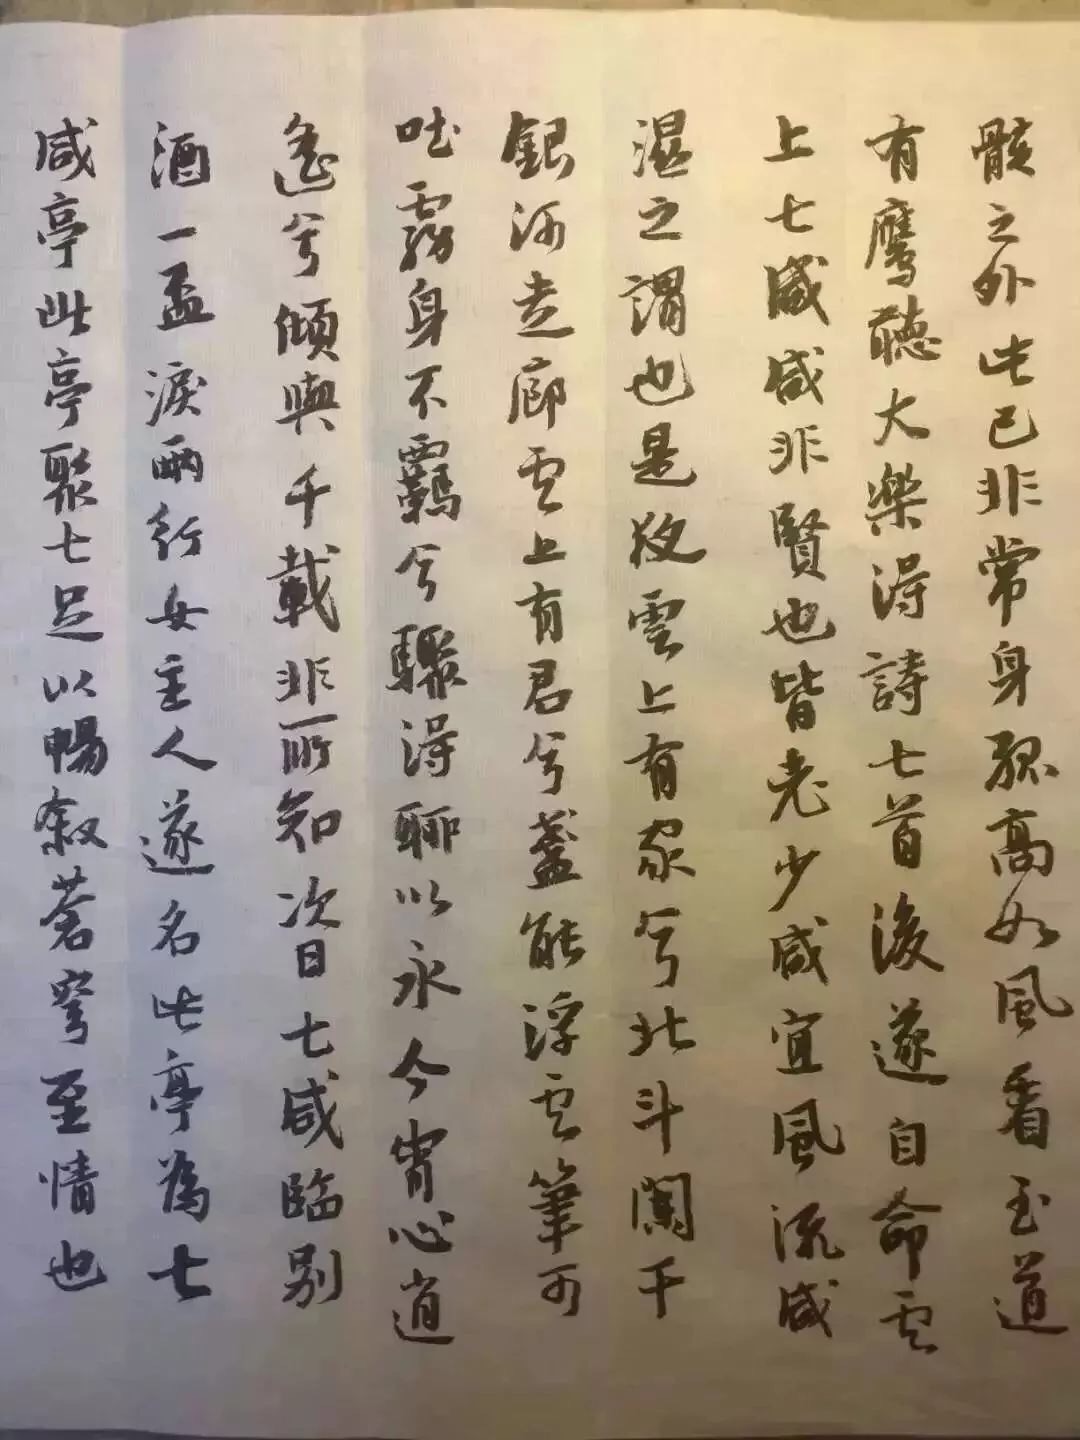 骸之外此已非常身孤高如風看玉道
有鷹聽大樂得詩七首後遂自命雲
上七咸咸非賢也皆老少咸宜風流咸
濕之謂也是夜雲上有家兮北斗闌干
銀河走廊雲上有君兮蓋能浮雲筆可
吐霧身不羈兮驟得聊以永今宵心逍
遙兮傾與千載非所知次日七咸臨別
酒一盃淚兩行女主人遂名此亭為七
咸亭此亭聚七足以暢敘蒼穹至情也